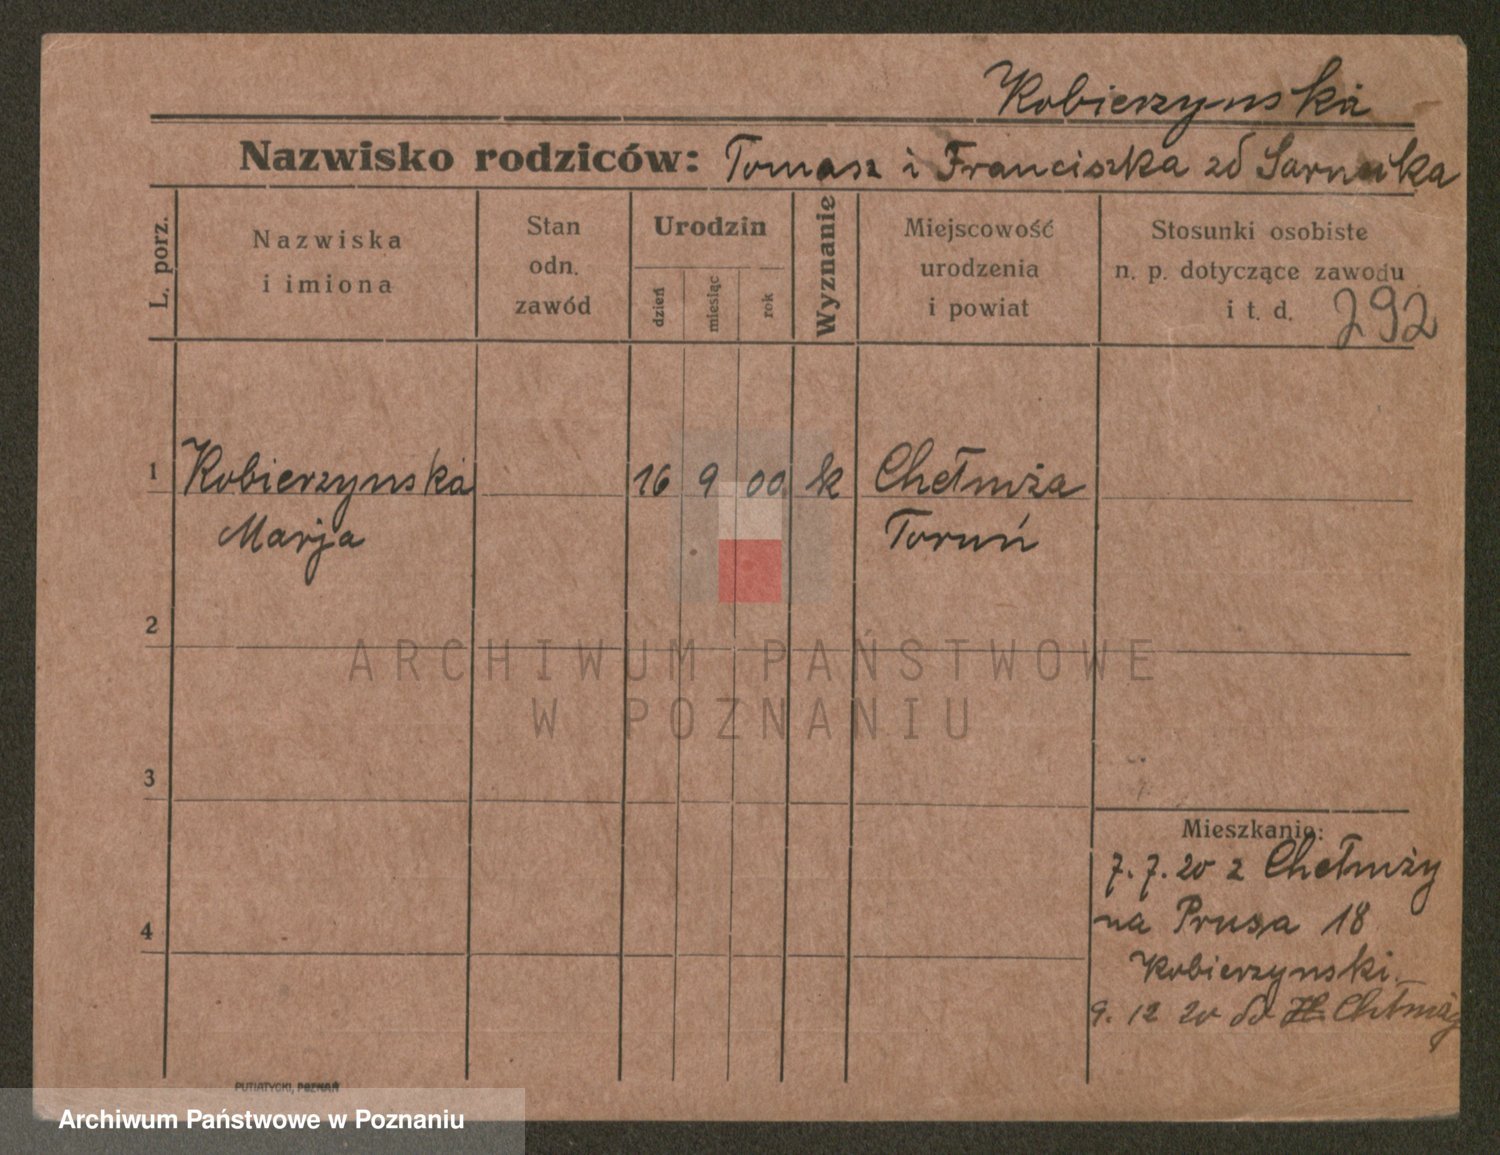 Kobierzynska
Nazwisko rodziców: Tomasz i Franciszka zd
L. porz.
Nazwiska
i imiona
Stan
odn.
zawód
Urodzin
dzień
miesiąc
rok
Wyznanie
Miejscowość
urodzenia
i powiat
Stosunki osobiste
n. p. dotyczące zawodu
i t. d. 292
1 Kobierzynska 16 9 00 k Chełmża
Marja Toruń
2
ARCHIWUM PAŃSTWOWE
W POZNANIU
3
Mieszkanie:
7.7.20 z Chełmży
4 na Prusa 18
Kobierzynski
9.12 20 do Chełmży
PUTIATYCKI, POZNAŃ
Archiwum Państwowe w Poznaniu